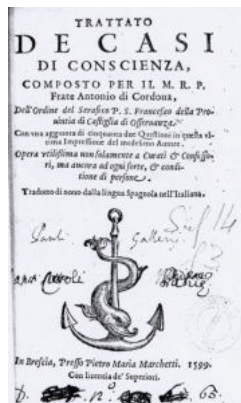 TRATTATO
DE CASI
DI CONSCIENZA,
COMPOSTO PER IL M. R. P.
Frate Antonio di Cordoua,
Dell'Ordine del Serafico P. S. Francesco della Pro-
uintia di Castiglia di Osseruanza.
Con vna aggionta di cinquanta due Questioni in questa vl-
tima Impressione del medesimo Autore.
Opera vtilissima non solamente a Curati & Confesso-
ri, ma ancora ad ogni sorte, & condi-
tione di persone.
Tradotto di nouo dalla lingua Spagnola nell'Italiana.
Pauli Gallery
In Brescia, Presso Pietro Maria Marchetti. 1599.
Con licentia de' Superiori.